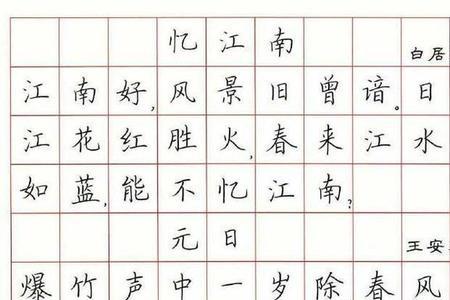 忆江南
白居
江南好,风景旧曾谙。日
江花红胜火,春来江水
如蓝,能不忆江南?
元日
王安
爆竹声中一岁除春风